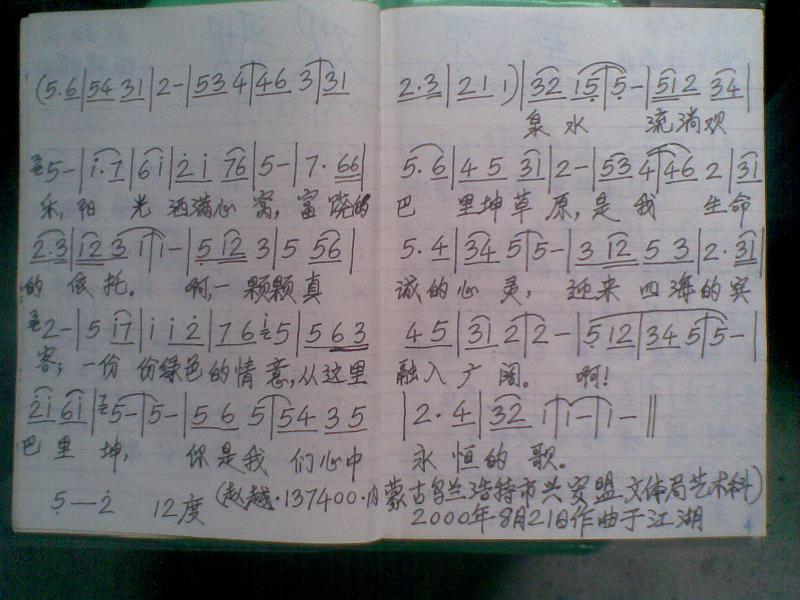 (5.6|54 31|2-|53 4|46 3|31 2.3|21 1)|32 15|5-|512 34|
泉 水 流淌欢
5-|i.7|6i|2 i 76|5-|7. 66| 5.6|4 5 31|2-|53 4|46 2|31
乐,阳 光 洒满心 窝,富饶的 巴 里坤草 原,是 我 生命
2.3|12 3 1|1-|5 12 3|5 56| 5.4|34 5|5-|3 12 5 3|2.31|
的 依托。 啊,一 颗颗真 诚的心 灵, 迎来 四海的宾
2-|5 i7|i i 2|7 6 5|5 6 3 45|31 2|2-|5 12|34 5|5-|
客; 一份 份绿色的情 意,从这里 融入 广 阔。 啊!
2i 6i|5-|5-|5 6 5|54 3 5 |2.4|32 1|1-|1-||
巴 里 坤, 你是我 们心中 永 恒的 歌。
5—2 12度 (赵越·137400·内蒙古乌兰浩特市兴安盟文体局艺术科)
2000年8月21日作曲于江湖
4